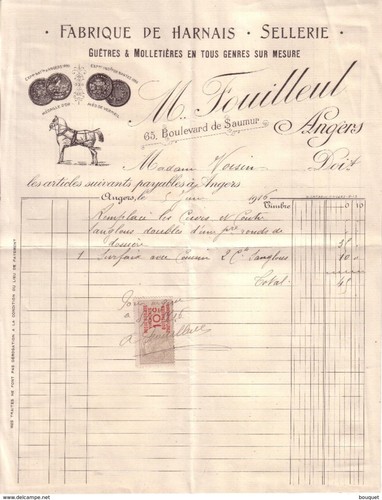 FABRIQUE DE HARNAIS - SELLERIE
GUÊTRES & MOLLETIÈRES EN TOUS GENRES SUR MESURE
MÉDAILLE D'OR
M. Fouilleul
65, Boulevard de Saumur
Angers
Madame Voisin Doit
les articles suivants payables à Angers
Angers, le juin 19 Timbre
Remplacé les Cuirs et
Sanglons doubles d'une ronds de
dossière 35
1 Surfaix avec 2 Sanglons 10
Total 45
10
NOS TRAITES NE FONT PAS DÉROGATION A LA CONDITION DU LIEU DE PAIEMENT
www.delcampe.net
bouquet